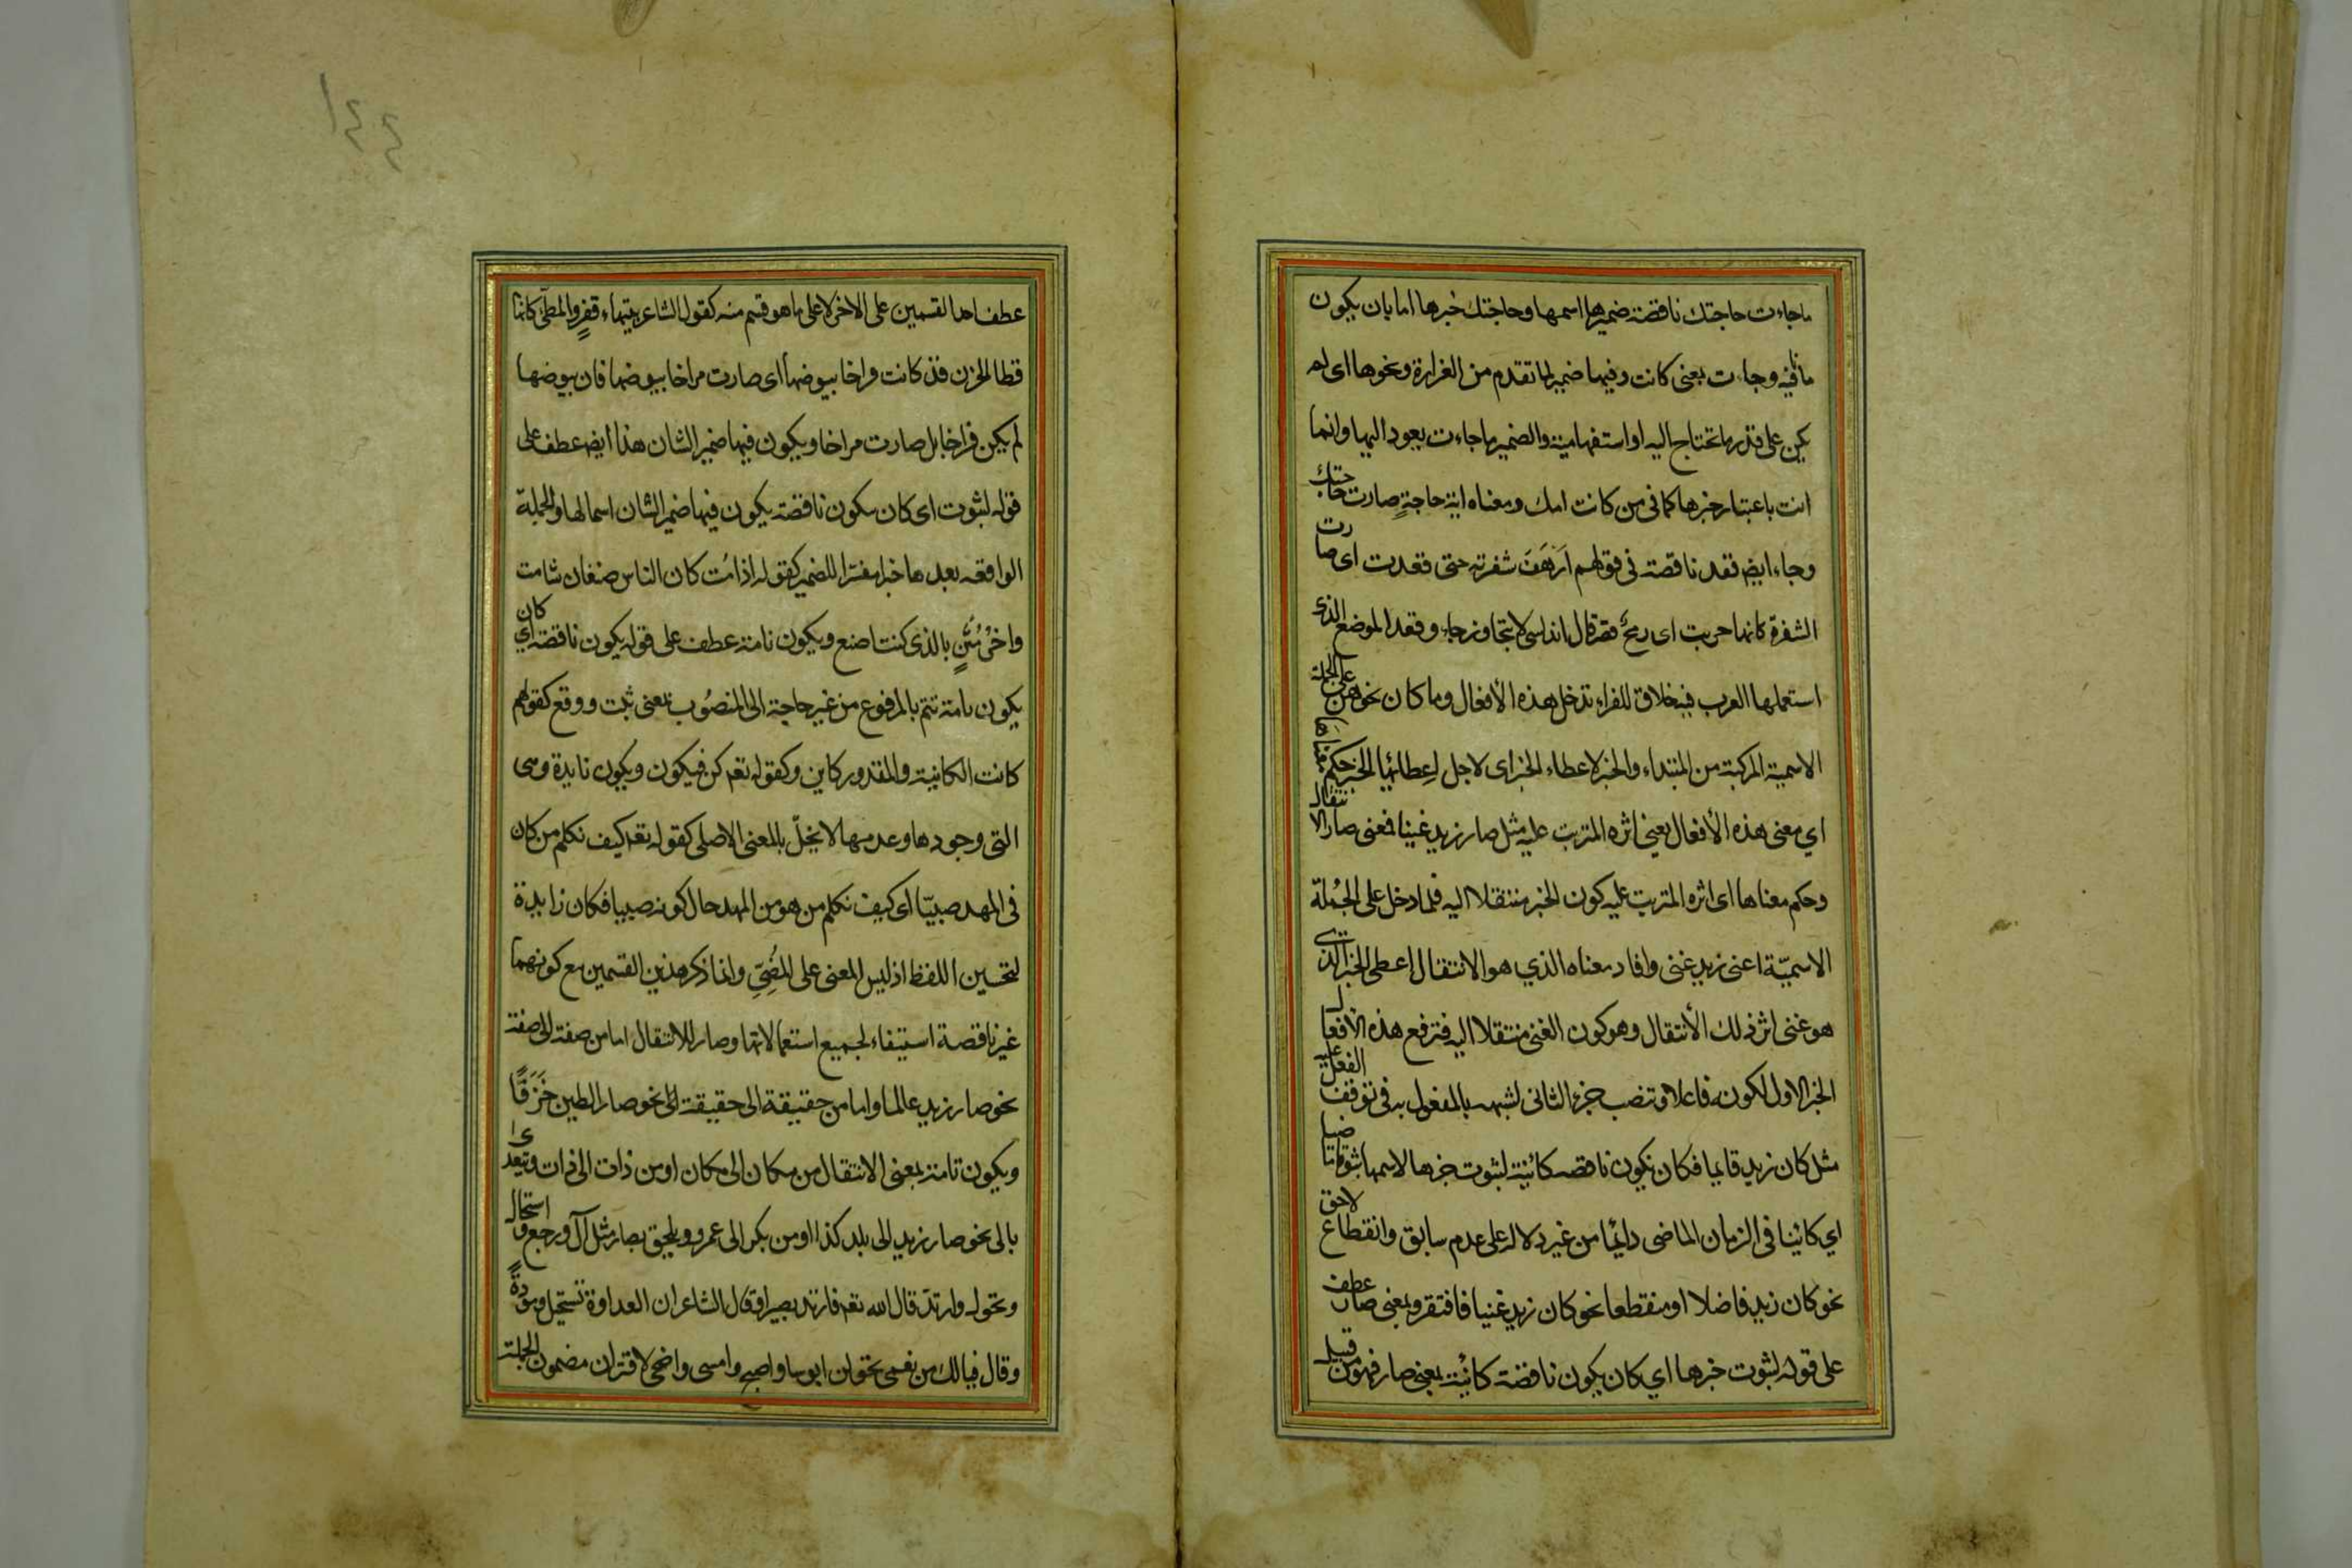 ماجاءت حاجتك ناقصة ضميرها اسمها وحاجتك خبرها اما بان يكون
ما نافية وجاءت بمعنى كانت وفيها ضمير لما تقدم من الغرارة ونحوها اى لم
يكن على قدر ما تحتاج اليه او استفهامية والضمير ما جاءت يعود اليها وانما
انت باعتبار خبرها كما فى من كانت امك ومعناه اية حاجةٍ صارت حاجتك
وجاء ايض قعد ناقصة فى قولهم ارهف شفرته حتى قعدت اى صارت
الشفرة كانها حربت اى رمح قال اندلسى لا يتجاوز جاء وقعد الموضع الذى
استعملها العرب فيه خلافا للفراء تدخل هذه الأفعال وما كان نحوهن على الجملة
الاسمية المركبة من المبتداء والخبر لاعطاء الخبر اى لاجل اعطائها الخبر حكم معناها
اي معنى هذه الأفعال يعني اثره المترتب عليه مثل صار زيد غنيا فمعنى صار الانتقال
وحكم معناها اى اثره المترتب عليه كون الخبر منتقلا اليه فلما دخل على الجملة
الاسميّة اعنى زيد غنى وافاد معناه الذي هو الانتقال اعطى الخبر الذى
هو غنى اثر ذلك الأنتقال وهو كون الغنى منتقلا اليه فترفع هذه الأفعال
الجزء الاول لكونه فاعلا وتنصب جزء الثانى لشبهه بالمفعول به فى توقف الفعل عليه
مثل كان زيد قايما فكان تكون ناقصه كائنية لثبوت خبرها لاسمها ثبوتا ماضيا
اي كائنا فى الزمان الماضى دائما من غير دلالة على عدم سابق وانقطاع لاحق
نحو كان زيد فاضلا او منقطعا نحو كان زيد غنيا فافتقر وبمعنى صار عطف
على قوله لثبوت خبرها اي كان يكون ناقصة كائنة بمعنى صار فهو من قبيل
١٤٤
عطف احد القسمين على الاخر لا على ما هو قسم منه كقول الشاعر بتيهاء قفرٍ والمطى كانها
قطا الحزن قد كانت فراخا بيوضها اى صارت فراخا بيوضها فان بيوضها
لم يكن فراخا بل صارت فراخا ويكون فيها ضمير الشان هذا ايض عطف على
قوله لثبوت اى كان يكون ناقصة يكون فيها ضمير الشان اسما لها والجملة
الواقعه بعدها خبرا مفسّرا للضمير كقوله اذا مُت كان الناس صنفان شامت
واخر مُثنٍ بالذى كنت اصنع ويكون تامة عطف على قوله يكون ناقصة اى كان
يكون تامة تتم بالمرفوع من غير حاجة الى المنصُوب بمعنى ثبت ووقع كقولهم
كانت الكاينة والمقدور كاين وكقوله تعم كن فيكون ويكون زايدة وهى
التى وجودها وعدمها لا يخلّ بالمعنى الاصلى كقوله تعم كيف نكلم من كان
فى المهد صبيّا اى كيف نكلم من هو من المهد حال كونه صبيا فكان زايدة
لتحسين اللفظ اذ ليس المعنى على المُضِىّ وانما ذكر هذين القسمين مع كونهما
غير ناقصة استيفاء لجميع استعمالاتها وصار للانتقال اما من صفة الى صفة
نحو صار زيد عالما واما من حقيقة الى حقيقة اى نحو صار الطين خَزَفًا
ويكون تامة بمعنى الانتقال من مكان الى مكان او من ذات الى ذات ويتعدى
بالى نحو صار زيد الى بلد كذا او من بكر الى عمرو ويلحق بصار مثل آل ورجع واستحال
وتحول وارتد قال الله تعم فارتد بصيرا وقال الشاعر ان العداوة تستحيل مودةً
وقال فيا لك من نعمى تحولن ابوسا واصبح وامسى واضحى لاقتران مضمون الجملة